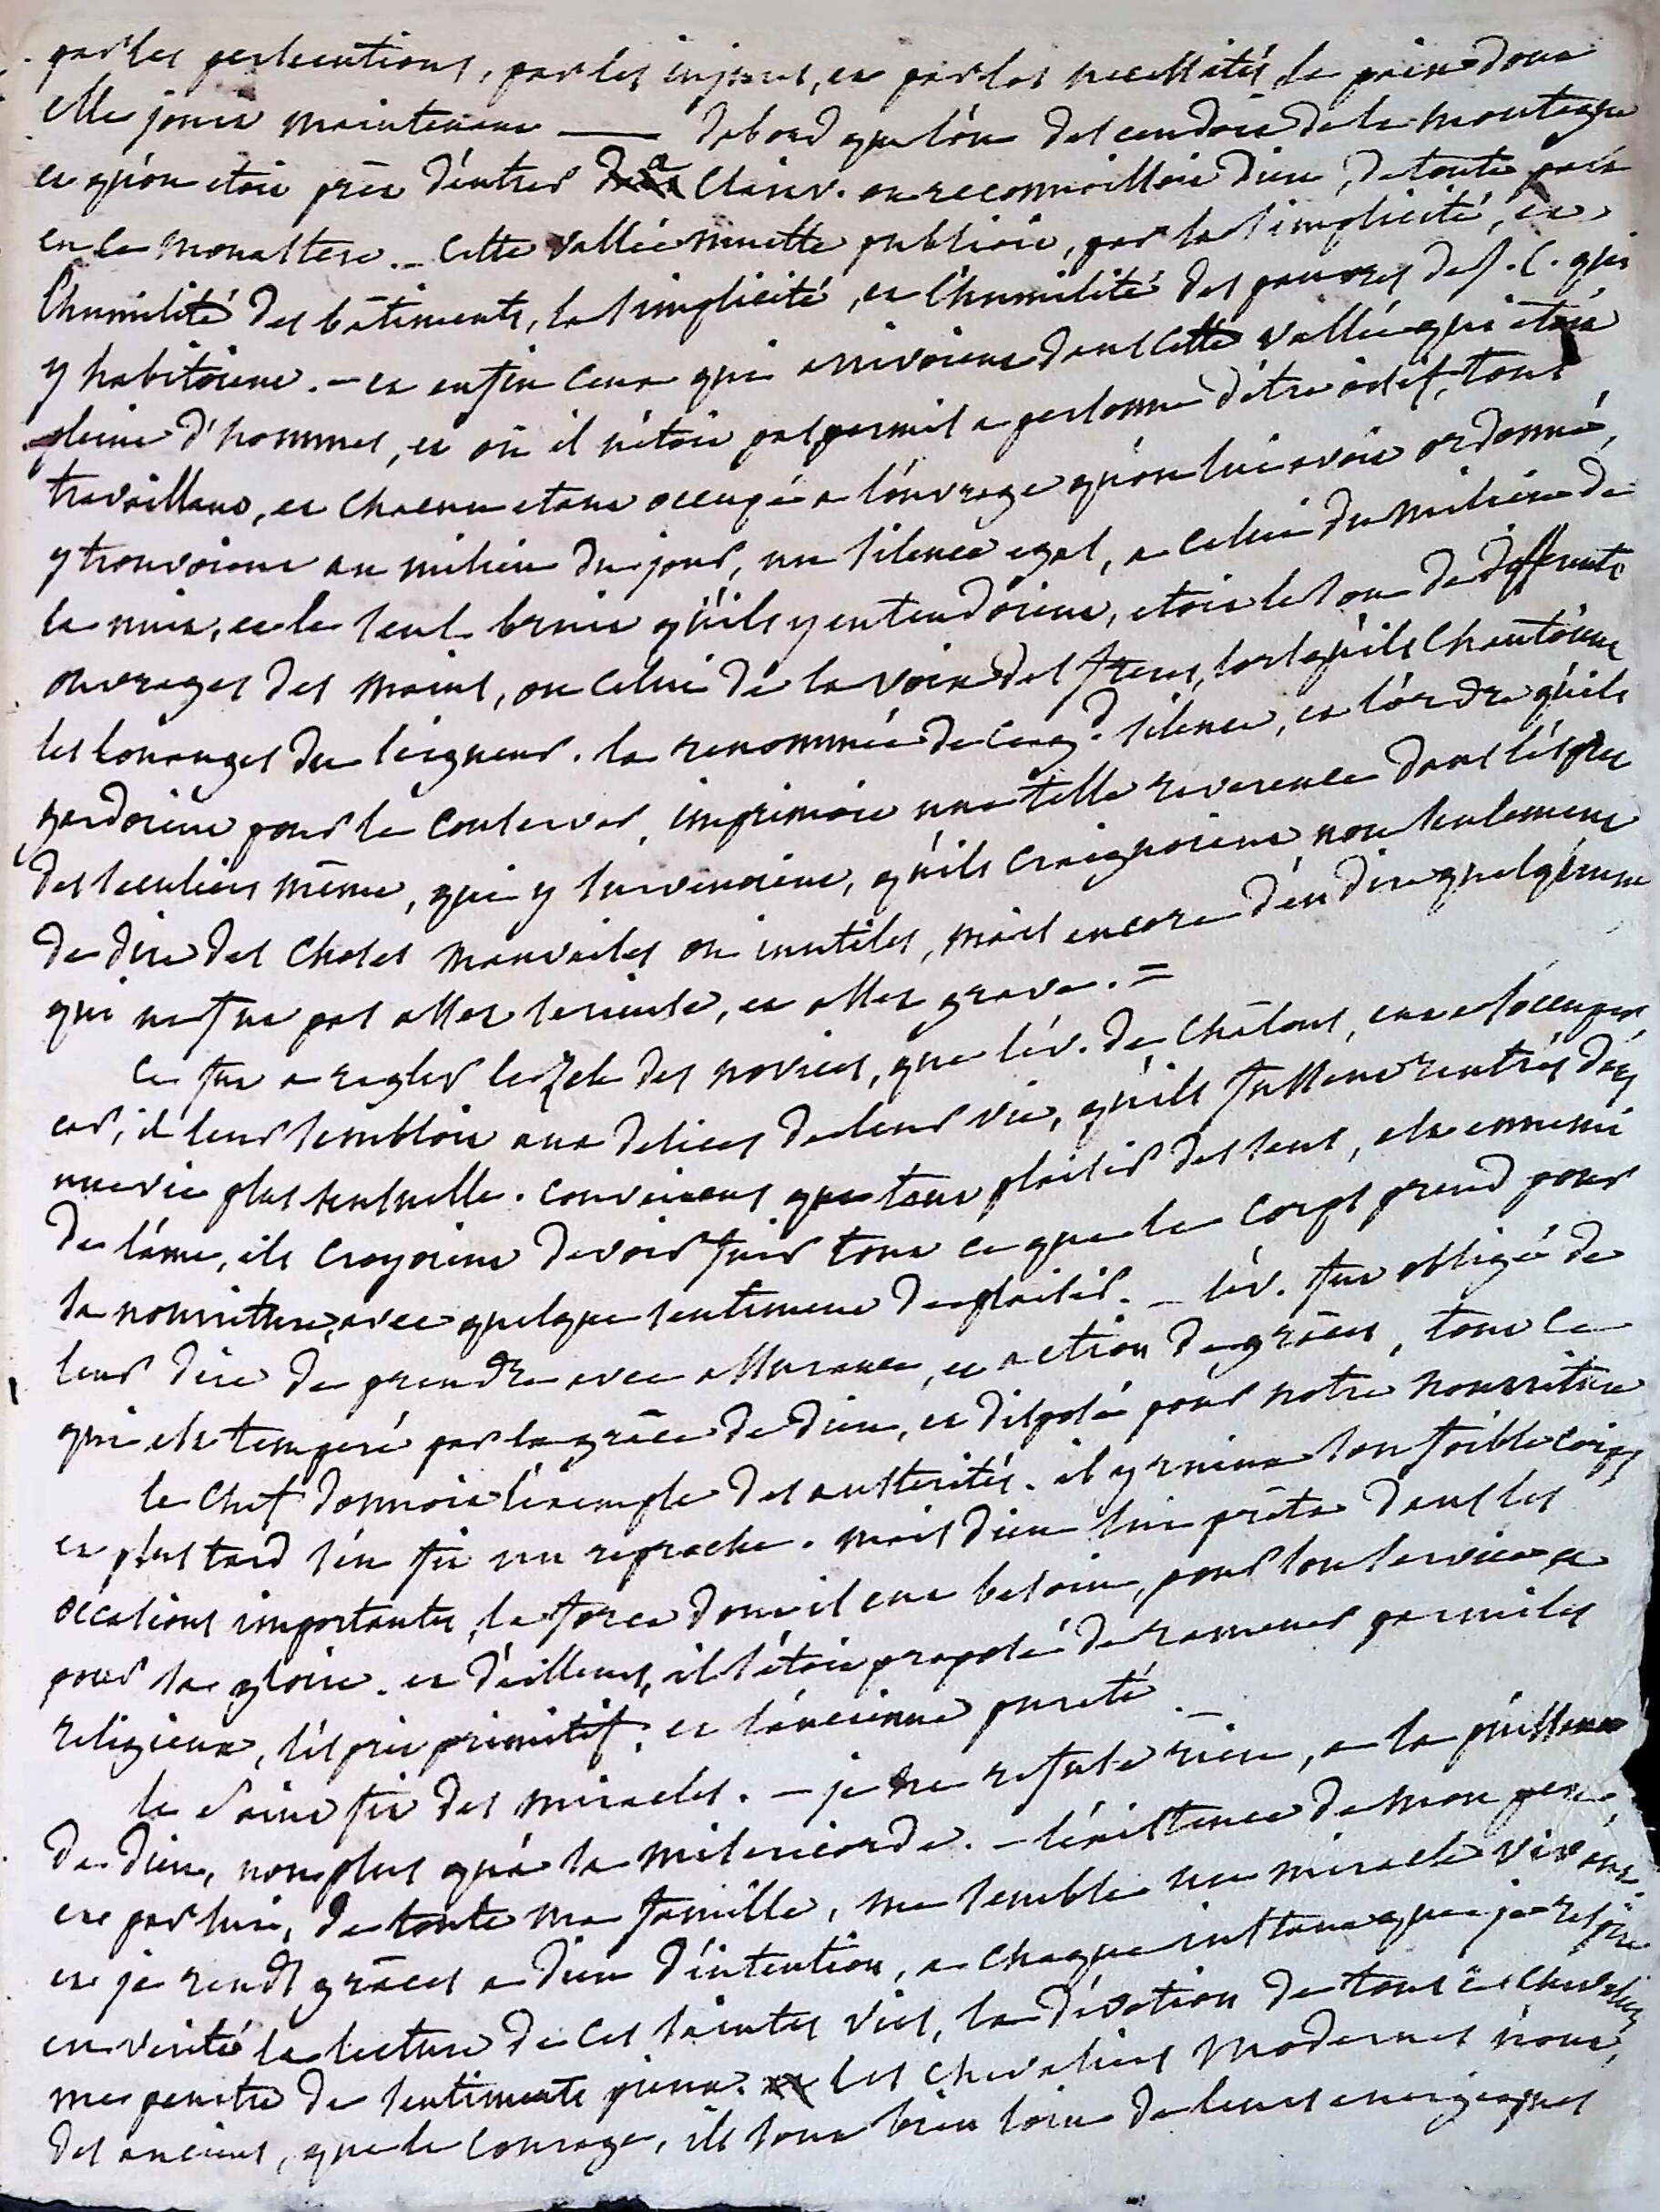 par les persecutions, par les injures, et par les necessités, la paix dont
elle jouit maintenant — dabord que l'on descendoit de la montagne
et qu'on etoit près d'entrer a Clairv. on reconnoissoit dieu, de toute part
en ce monastere. _ Cette vallée muette publioit, par la simplicité, et
l'humilité des bâtiments, la simplicité, et l'humilité des pauvres de J. C. qui
y habitoient. — et enfin ceux qui arrivoient dans cette vallée qui étoit
pleine d'hommes, et où il n'étoit pas permis a personne d'être oisif, tous
travaillant, et chacun etant occupé a l'ouvrage qu'on lui avoit ordonné,
y trouvoient au milieu du jour, un silence egal, a celui du milieu de
la nuit, et le seul bruit qu'ils y entendoient, etoit le son de differents
ouvrages des mains, ou celui de la voix des freres, lorsqu'ils chantoient
les louanges du seigneur. la renommée de ce gd. silence, et l'ordre qu'ils
gardoient pour le conserver, imprimoit une telle reverence dans l'esprit
des seculiers même, qui y survenoient, qu'ils craignoient non seulement
de dire des choses mauvaises ou inutiles, mais encore d'en dire quelqu'une
qui ne fut pas assez serieuse, et assez grave. =
Ce fut a regler le zele des novices, que l'év. de Châlons, eut a s'occuper
car, il leur sembloit aux delices de leur vie, qu'ils fussent rentrés dans
une vie plus sensuelle. convaincus que tout plaisir des sens, est ennemi
de l'ame, ils croyoient devoir fuir tout ce que le corps prend pour
sa nourriture, avec quelque sentiment de plaisir. _ l'év. fut obligé de
leur dire de prendre avec assurance, et action de grâces, tout ce
qui est temperé par la grâce de dieu, et disposé pour notre nourriture
le chef donnoit l'exemple des austerités. il y ruina son foible corps
et plus tard s'en fit un reproche. mais dieu lui prêta dans les
occasions importantes, la force dont il eut besoin, pour son service et
pour sa gloire. et d'ailleurs, il s'étoit proposé de ramener parmi les
religieux, l'esprit primitif, et l'ancienne pureté. —
le saint fit des miracles. — je ne refuse rien, a la puissance
de dieu, non plus qu'à sa misericorde. — l'existence de mon pere,
et par lui, de toute ma famille, me semble un miracle vivant.
et je rends grâces a dieu d'intention, a chaque instant que je respire
en verité la lecture de ces saintes vies, la dévotion de tous ces chevaliers
me penetre de sentiments pieux. les chevaliers modernes n'ont,
des anciens, que le courage, ils sont bien loin de leurs